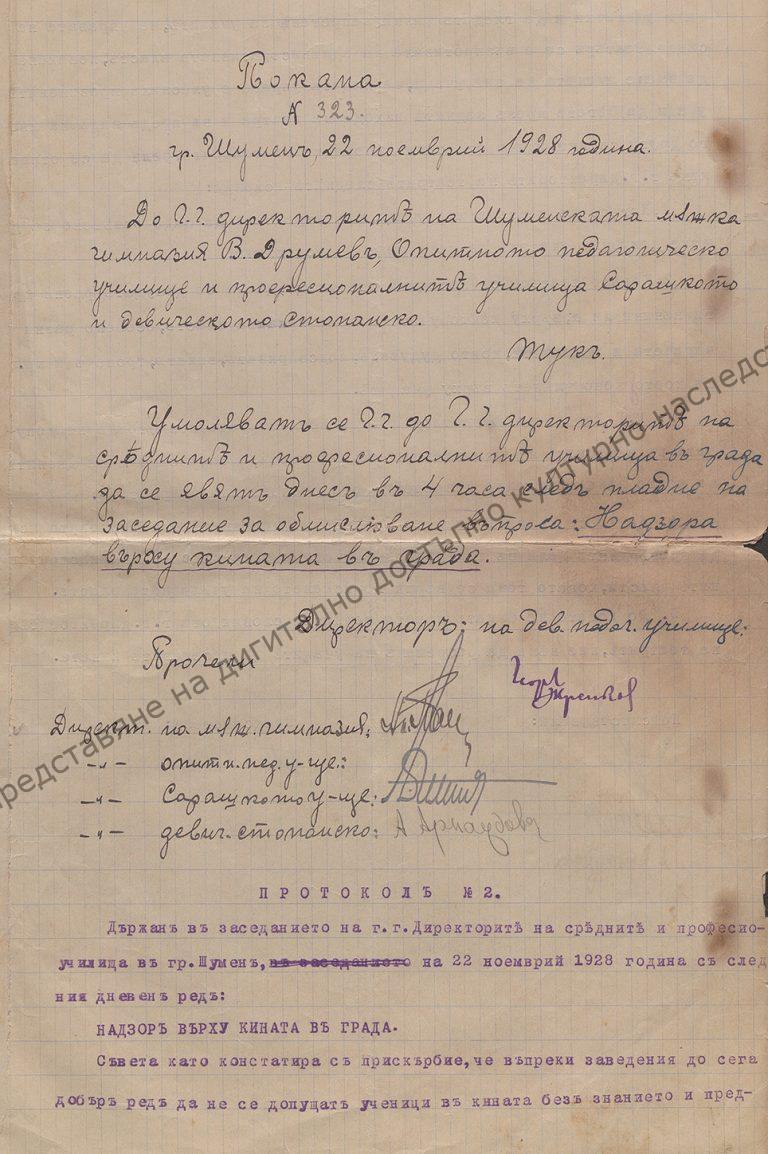 Покана
N 323.
гр. Шуменъ, 22 ноемврий 1928 година.
До Г.г. директоритѣ на Шуменската мѫжка
гимназия В. Друмевъ, Опитното педагогическо
училище и професионалнитѣ училища Сарашкото
и девическото стопанско.
Тукъ.
Умоляватъ се Г.г. до Г.г. директоритѣ на
срѣднитѣ и професионалнитѣ училища въ града
да се явятъ днесъ въ 4 часа следъ пладне на
заседание за обмисляване въпроса: Надзора
върху кината въ града.
Директоръ: на дев. педаг. училище:
Прочели
Директ. на мѫж. гимназия:
-„- опитн. пед. у-ще:
-„- Сарашкото у-ще:
-„- девич. стопанско: А Арнаудова
ПРОТОКОЛЪ №2.
Държанъ въ заседанието на г.г.Директоритѣ на срѣднитѣ и професио-
училища въ гр.Шуменъ, въ заседанието на 22 ноемврий 1928 година съ след
ния дневенъ редъ:
НАДЗОРЪ ВЪРХУ КИНАТА ВЪ ГРАДА.
Съвета като констатира съ прискърбие,че въпреки заведения до сега
добъръ редъ да не се допущатъ ученици въ кината безъ знанието и пред-
представяне на дигитално достъпно културно наследст